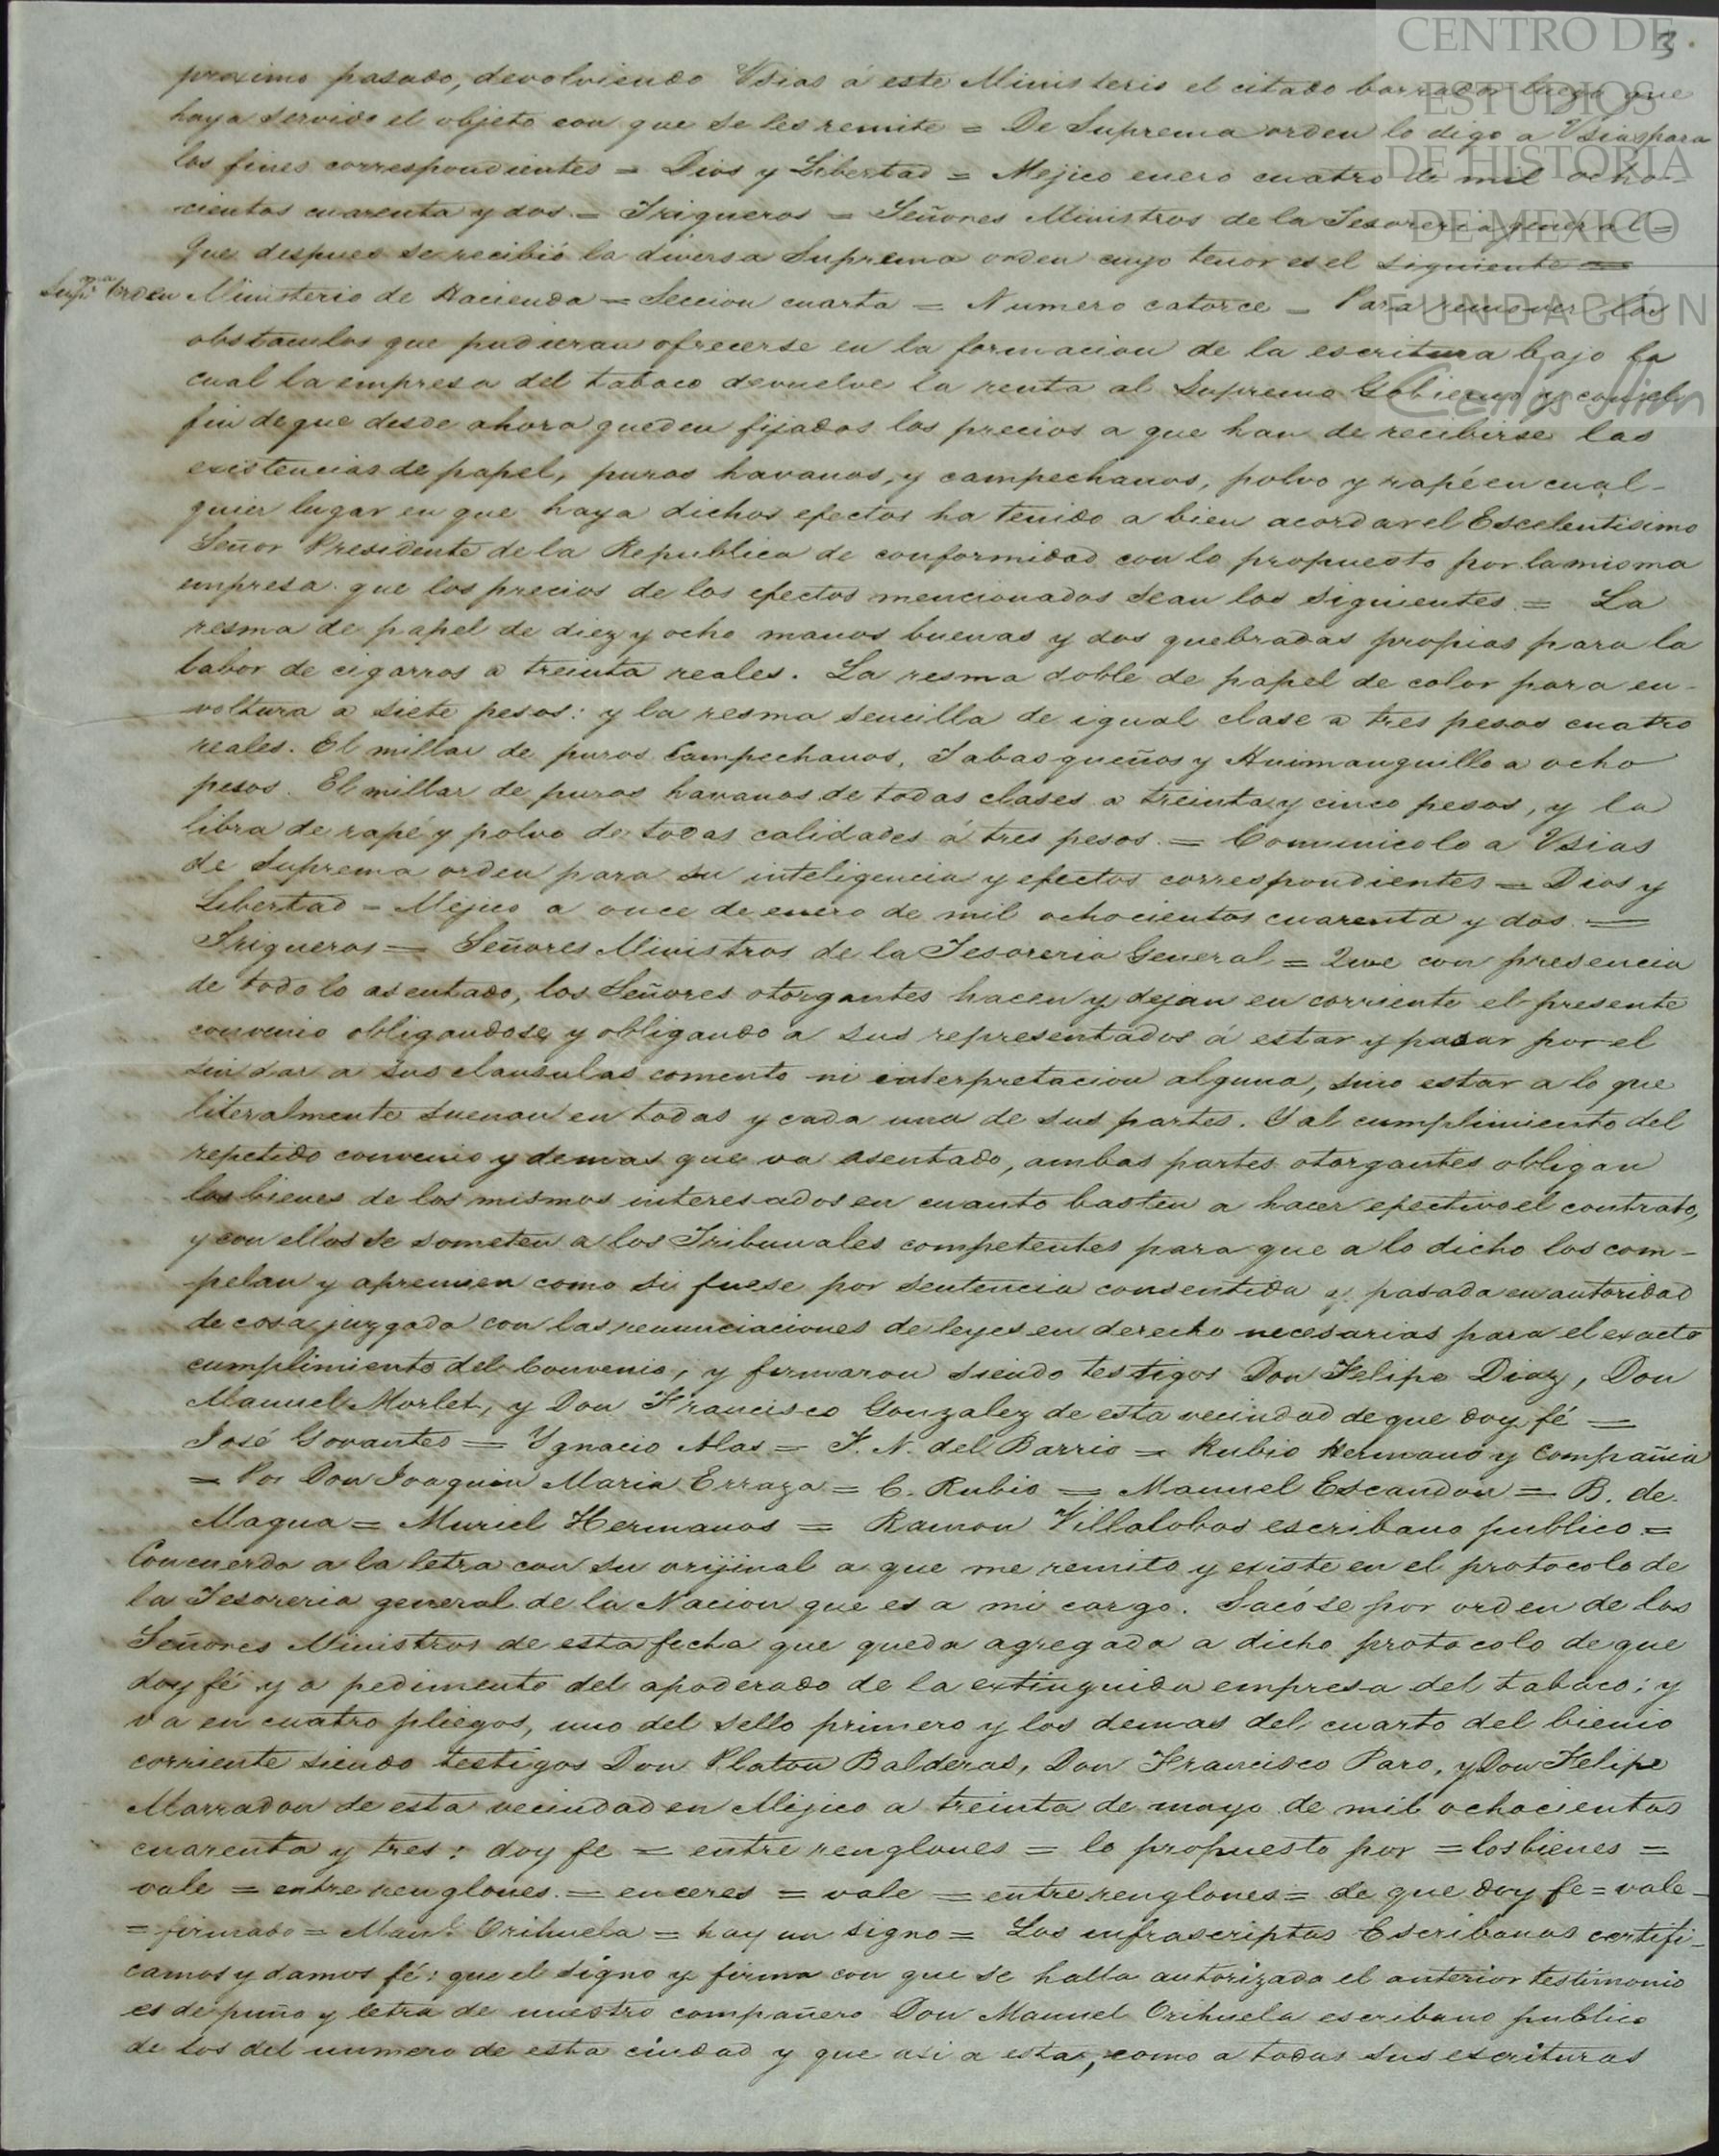 3.
CENTRO DE
ESTUDIOS
DE HISTORIA
DE MEXICO
FUNDACIÓN
Carlos Slim
proximo pasado, devolviendo Vsias á este Ministerio el citado borrador luego que
haya servido el objeto con que se les remite = De Suprema orden lo digo a Vsias para
los fines correspondientes = Dios y Libertad = Mejico enero cuatro de mil ocho-
cientos cuarenta y dos = Trigueros = Señores Ministros de la Tesoreria general =
Que despues se recibió la diversa Suprema orden cuyo tenor es el siguiente =
Supma. Orden Ministerio de Hacienda = Seccion cuarta = Numero catorce = Para remover los
obstaculos que pudieran ofrecerse en la formacion de la escritura bajo la
cual la empresa del tabaco devuelve la renta al Supremo Gobierno y con el
fin de que desde ahora queden fijados los precios a que han de recibirse las
existencias de papel, puros havanos, y campechanos, polvo y rapé en cual-
quier lugar en que haya dichos efectos ha tenido a bien acordar el Escelentisimo
Señor Presidente de la Republica de conformidad con lo propuesto por la misma
empresa que los precios de los efectos mencionados sean los siguientes = La
resma de papel de diez y ocho manos buenas y dos quebradas propias para la
labor de cigarros a treinta reales. La resma doble de papel de color para en-
voltura a siete pesos: y la resma sencilla de igual clase a tres pesos cuatro
reales. El millar de puros Campechanos, Tabasqueños y Huimanguillo a ocho
pesos. El millar de puros havanos de todas clases a treinta y cinco pesos, y la
libra de rapé y polvo de todas calidades á tres pesos = Comunicolo a Vsias
de Suprema orden para su inteligencia y efectos correspondientes = Dios y
Libertad = Mejico a once de enero de mil ochocientos cuarenta y dos =
Trigueros = Señores Ministros de la Tesoreria General = Que con presencia
de todo lo asentado, los Señores otorgantes hacen y dejan en corriente el presente
convenio obligandose y obligando a sus representados á estar y pasar por el
sin dar a sus clausulas comento ni interpretacion alguna, sino estar a lo que
literalmente suenan en todas y cada una de sus partes. Y al cumplimiento del
repetido convenio y demas que va asentado, ambas partes otorgantes obligan
los bienes de los mismos interesados en cuanto basten a hacer efectivo el contrato,
y con ellos se someten a los Tribunales competentes para que a lo dicho los com-
pelan y apremien como si fuese por sentencia consentida y pasada en autoridad
de cosa juzgada con las renunciaciones de leyes en derecho necesarias para el exacto
cumplimiento del Convenio, y firmaron siendo testigos Don Felipe Diaz, Don
Manuel Morlet, y Don Francisco Gonzalez de esta vecindad de que doy fé =
José Govantes = Ygnacio Alas = F. N. del Barrio = Rubio Hermano y Compañia
= Por Don Joaquin Maria Errazo = C. Rubio = Manuel Escandon = B. de
Magua = Muriel Hermanos = Ramon Villalobos escribano publico =
Concuerda a la letra con su orijinal a que me remito y existe en el protocolo de
la Tesoreria general de la Nacion que es a mi cargo. Sacóse por orden de los
Señores Ministros de esta fecha que queda agregada a dicho protocolo de que
doy fé y a pedimento del apoderado de la extinguida empresa del tabaco; y
va en cuatro pliegos, uno del sello primero y los demas del cuarto del bienio
corriente siendo testigos Don Platon Balderas, Don Francisco Paro, y Don Felipe
Marradon de esta vecindad en Mejico a treinta de mayo de mil ochocientos
cuarenta y tres: doy fe = entre renglones = lo propuesto por = los bienes =
vale = entre renglones = enceres = vale = entre renglones = de que doy fe = vale =
= firmado = Manl. Orihuela = hay un signo = Los infrascriptos Escribanos certifi-
camos y damos fé: que el signo y firma con que se halla autorizado el anterior testimonio
es de puño y letra de nuestro compañero Don Manuel Orihuela escribano publico
de los del numero de esta ciudad y que asi a esta, como a todas sus escrituras